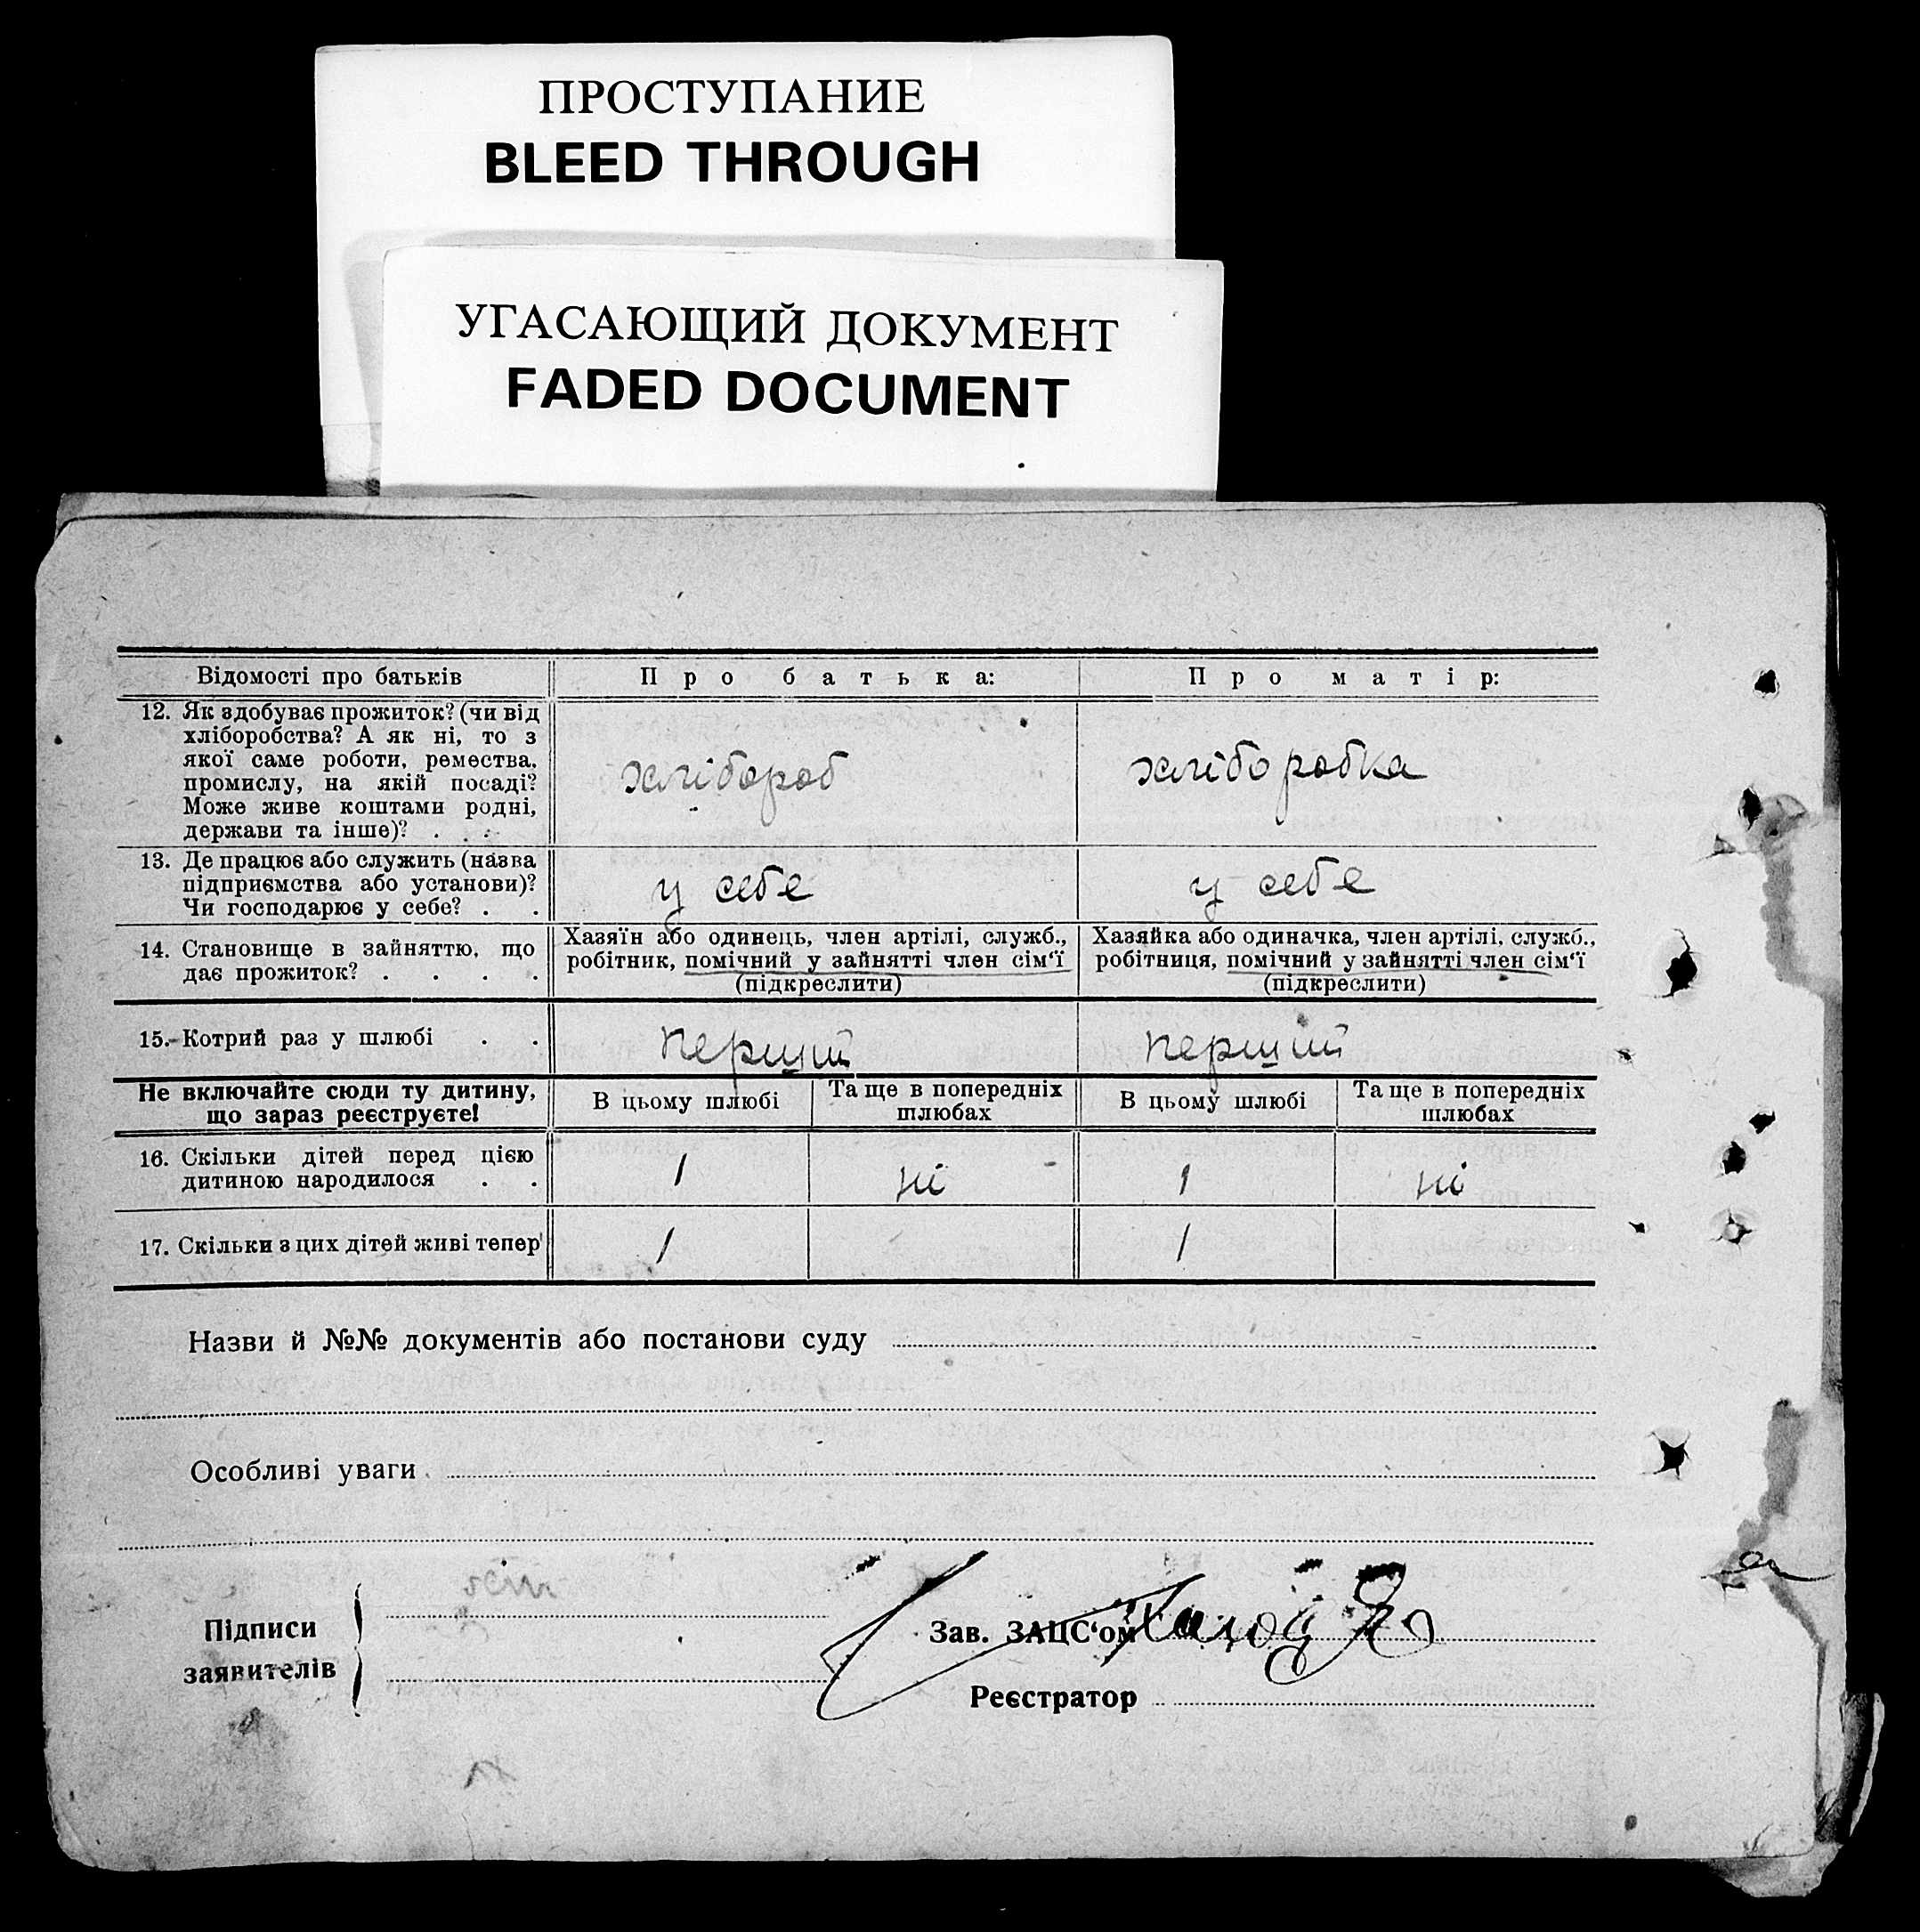 ПРОСТУПАНИЕ
BLEED THROUGH
УГАСАЮЩИЙ ДОКУМЕНТ
FADED DOCUMENT
Відомості про батьків
Про батька:
Про матір:
12. Як здобуває прожиток? (чи від
хліборобства? А як ні, то з
якої саме роботи, ремества,
промислу, на якій посаді?
Може живе коштами родні,
держави та інше)? . . .
хлібороб
хліборобка
13. Де працює або служить (назва
підприємства або установи)?
Чи господарює у себе? . .
у себе
у себе
14. Становище в зайняттю, що
дає прожиток? . . . .
Хазяїн або одинець, член артілі, служб.,
робітник, помічний у зайнятті член сім‘ї
(підкреслити)
Хазяйка або одиначка, член артілі, служб.,
робітниця, помічний у зайнятті член сім‘ї
(підкреслити)
15. Котрий раз у шлюбі . .
перший
перший
Не включайте сюди ту дитину,
що зараз реєструєте!
В цьому шлюбі
Та ще в попередніх
шлюбах
В цьому шлюбі
Та ще в попередніх
шлюбах
16. Скільки дітей перед цією
дитиною народилося . .
1
ні
1
ні
17. Скільки з цих дітей живі тепер
1
1
Назви й №№ документів або постанови суду
Особливі уваги
Підписи
заявителів
Зав. ЗАЦС‘ом
Реєстратор